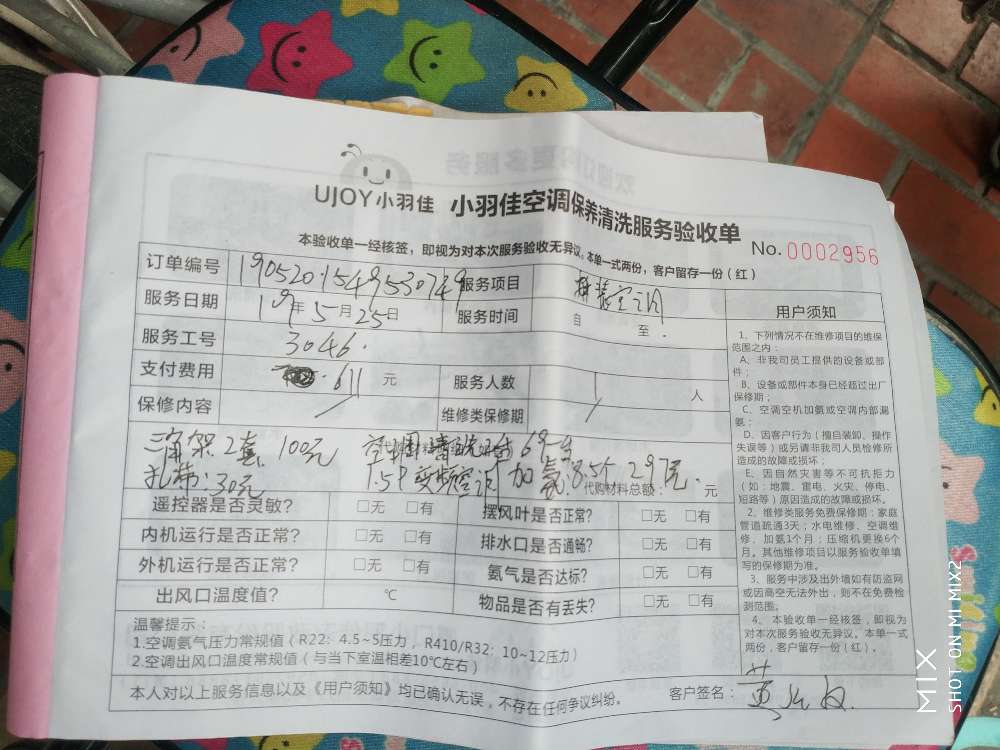 UJOY小羽佳 小羽佳空调保养清洗服务验收单
本验收单一经核签，即视为对本次服务验收无异议。本单一式两份，客户留存一份（红）
No. 0002956
订单编号 1905201549530749 服务项目 拆装空调
服务日期 19年5月25日 服务时间 自 至
服务工号 3046.
支付费用 611 元 服务人数 人
保修内容 维修类保修期
三角架2套 100元 空调清洗
扎带:30元 1.5P变频空调 加氨:8.5个 297元. 代购材料总额: 元
遥控器是否灵敏? □无 □有 摆风叶是否正常? □无 □有
内机运行是否正常? □无 □有 排水口是否通畅? □无 □有
外机运行是否正常? □无 □有 氨气是否达标? □无 □有
出风口温度值? ℃ 物品是否有丢失? □无 □有
温馨提示：
1.空调氨气压力常规值（R22: 4.5~5压力，R410/R32: 10~12压力）
2.空调出风口温度常规值（与当下室温相差10℃左右）
本人对以上服务信息以及《用户须知》均已确认无误，不存在任何争议纠纷。 客户签名: 黄
用户须知
1、下列情况不在维修项目的维保
范围之内：
A、非我司员工提供的设备或部
件；
B、设备或部件本身已经超过出厂
保修期；
C、空调空机加氨或空调内部漏
氨；
D、因客户行为（擅自装卸、操作
失误等）或另请非我司人员检修所
造成的故障或损坏；
E、因自然灾害等不可抗拒力
（如：地震、雷电、火灾、停电、
短路等）原因造成的故障或损坏。
2、维修类服务免费保修期：家庭
管道疏通3天；水电维修、空调维
修、加氨1个月；压缩机更换6个
月。其他维修项目以服务验收单填
写的保修期为准。
3、服务中涉及出外墙如有防盗网
或因高空无法外出，则不在免费检
测范围。
4、本验收单一经核签，即视为
对本次服务验收无异议。本单一式
两份，客户留存一份（红）。
MIX
SHOT ON MI MIX2